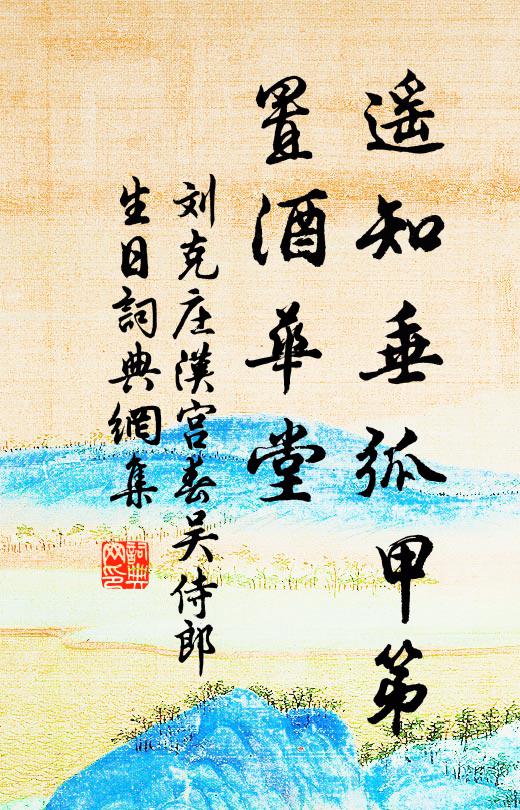 遥知垂弧甲第
置酒華堂
刘克庄漢宮春吴侍郎
生日詞典網集
詞典
网印